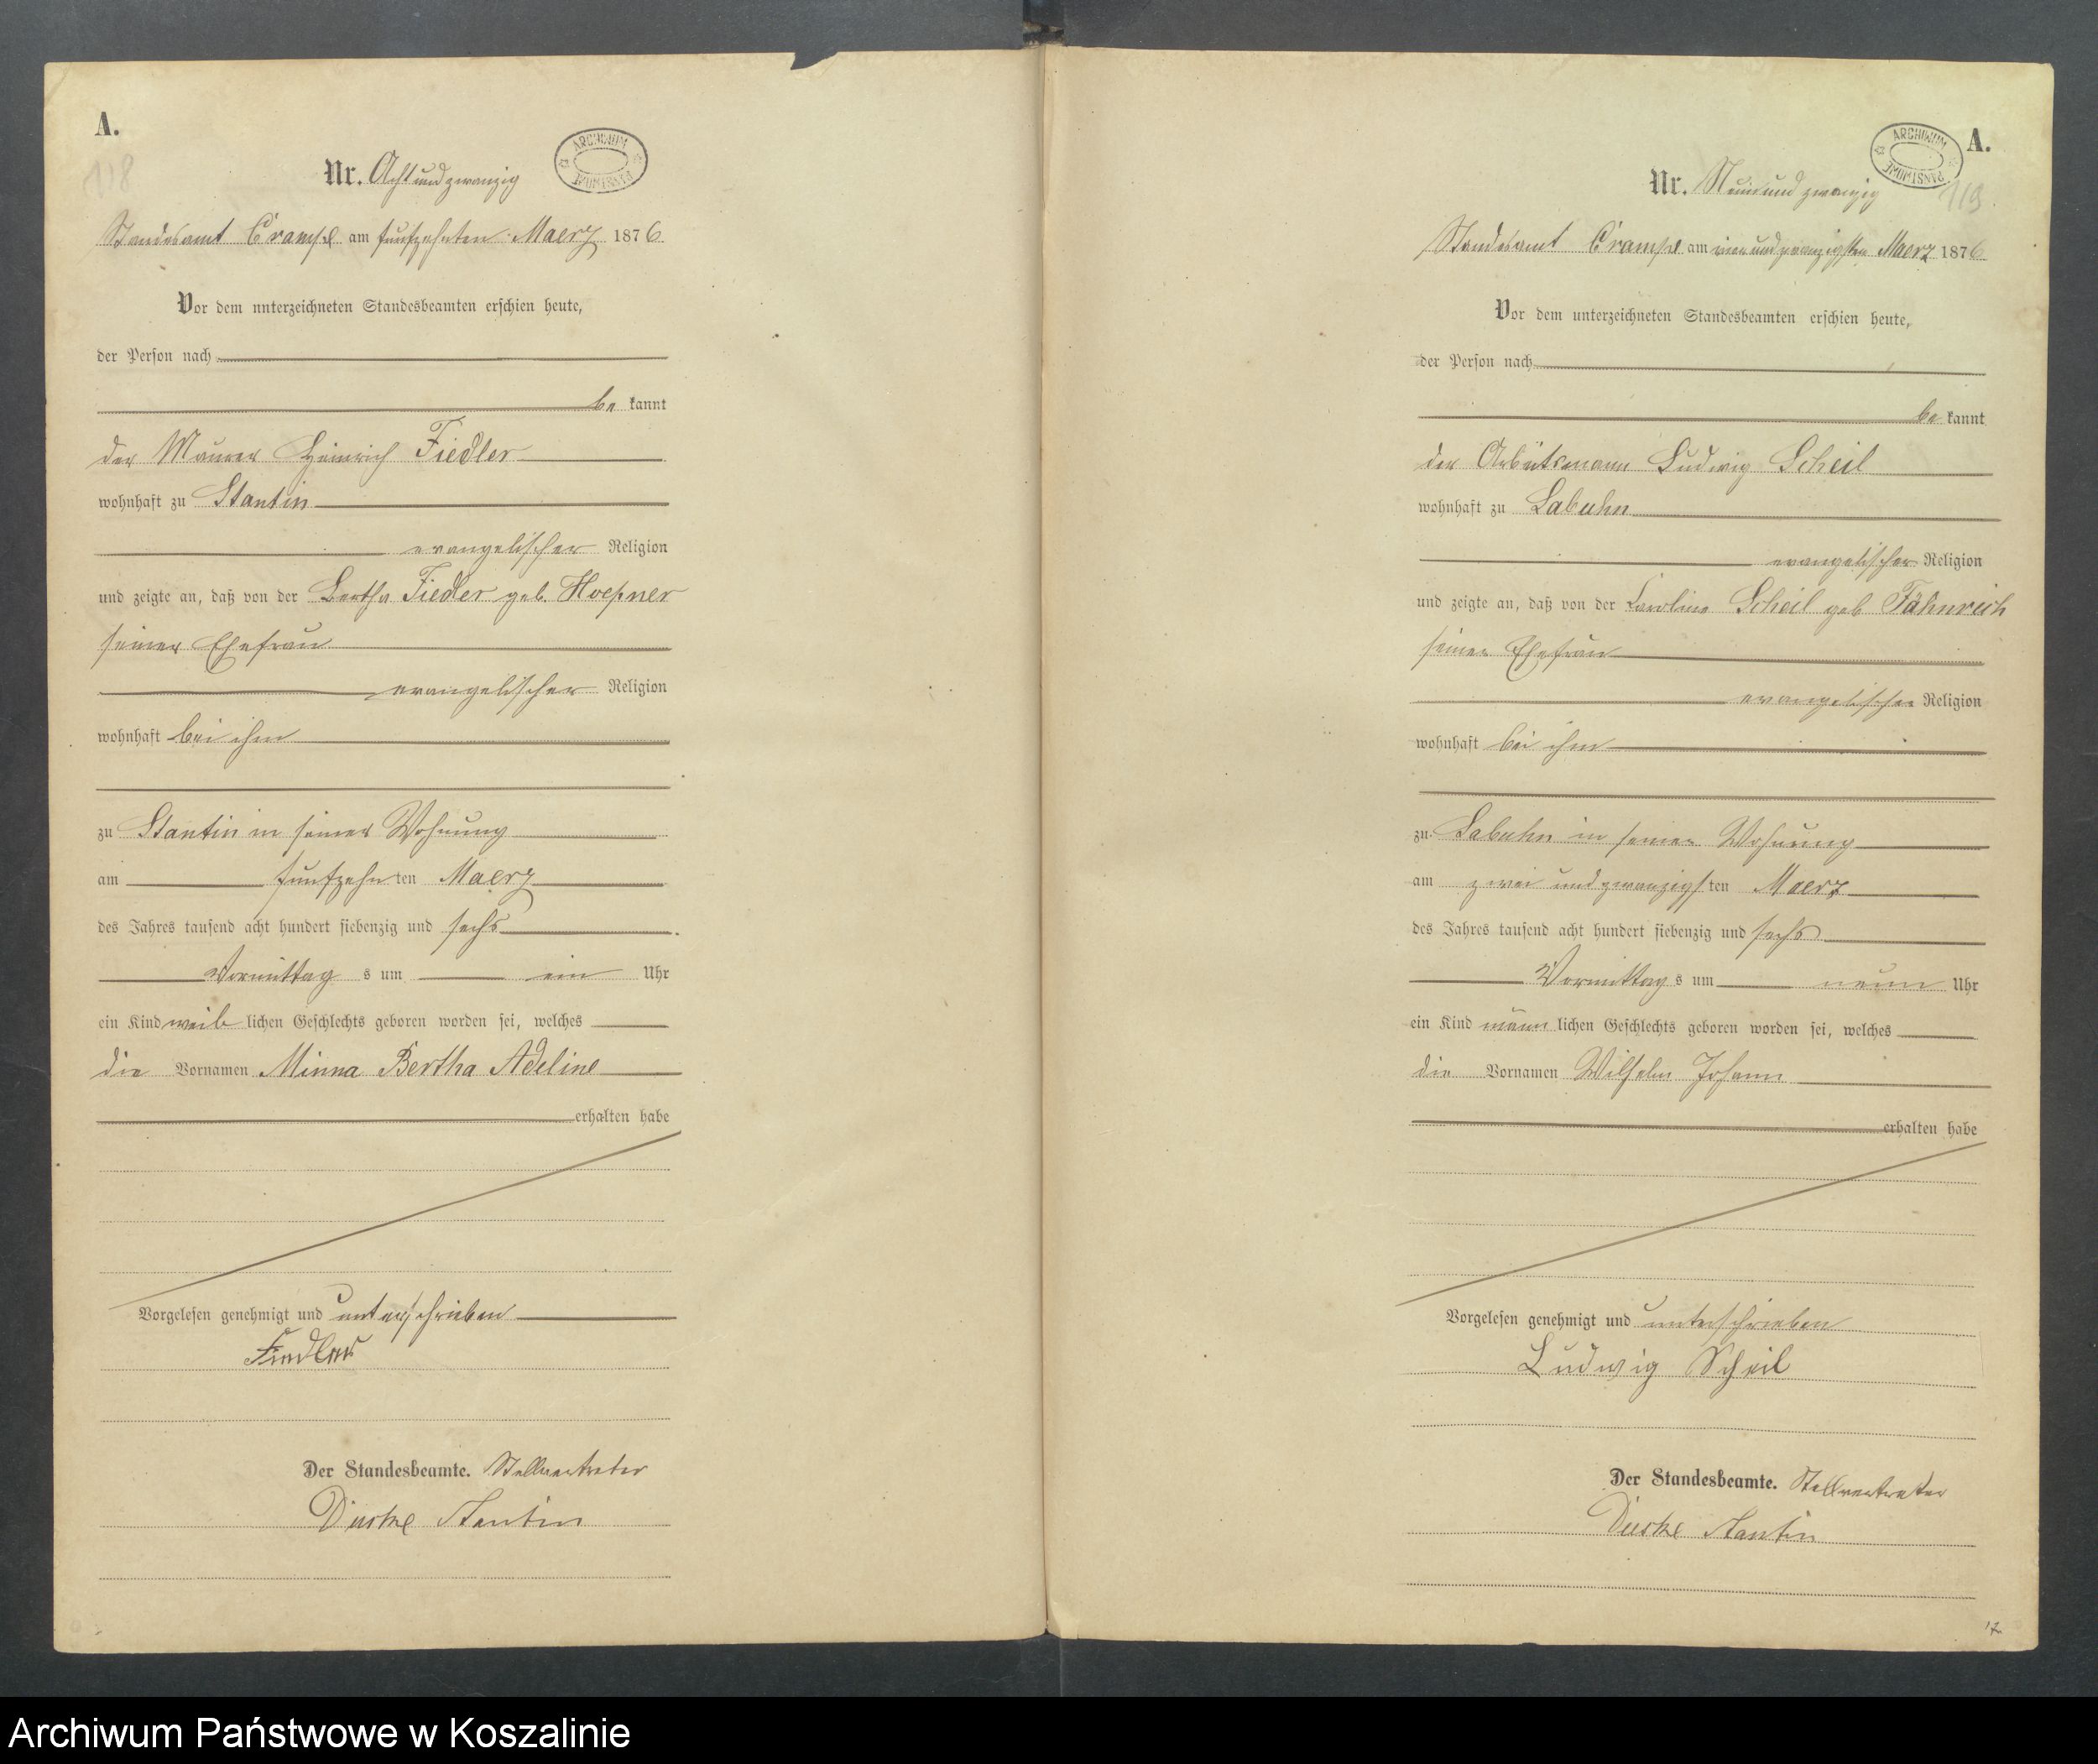 A.
118
Nr. Achtundzwanzig
ARCHIWUM PAŃSTWOWE
Standesamt Crampe am funfzehnten Maerz 1876
Vor dem unterzeichneten Standesbeamten erschien heute,
der Person nach
be kannt
der Maurer Heinrich Fiedler
wohnhaft zu Stantin
evangelischer Religion
und zeigte an, daß von der Bertha Fiedler geb. Hoepner
seiner Ehefrau
evangelischer Religion
wohnhaft bei ihm
zu Stantin in seiner Wohnung
am funfzehn ten Maerz
des Jahres tausend acht hundert siebenzig und sechs
Vormittag s um ein Uhr
ein Kind weib lichen Geschlechts geboren worden sei, welches
die Vornamen Minna Bertha Adeline
erhalten habe
Vorgelesen genehmigt und unterschrieben
Fiedler
Der Standesbeamte. Stellvertreter
Stantin
A.
119
ARCHIWUM PAŃSTWOWE
Nr. Neunundzwanzig
Standesamt Crampe am vierundzwanzigsten Maerz 1876
Vor dem unterzeichneten Standesbeamten erschien heute,
der Person nach
be kannt
der Arbeitsmann Ludwig Scheil
wohnhaft zu Labuhn
evangelischer Religion
und zeigte an, daß von der Caroline Scheil geb Fähnrich
seiner Ehefrau
evangelischer Religion
wohnhaft bei ihm
zu Labuhn in seiner Wohnung
am zwei und zwanzigs ten Maerz
des Jahres tausend acht hundert siebenzig und sechs
Vormittag s um neun Uhr
ein Kind männ lichen Geschlechts geboren worden sei, welches
die Vornamen Wilhelm Johann
erhalten habe
Vorgelesen genehmigt und unterschrieben
Ludwig Scheil
Der Standesbeamte. Stellvertreter
Stantin
17
Archiwum Państwowe w Koszalinie